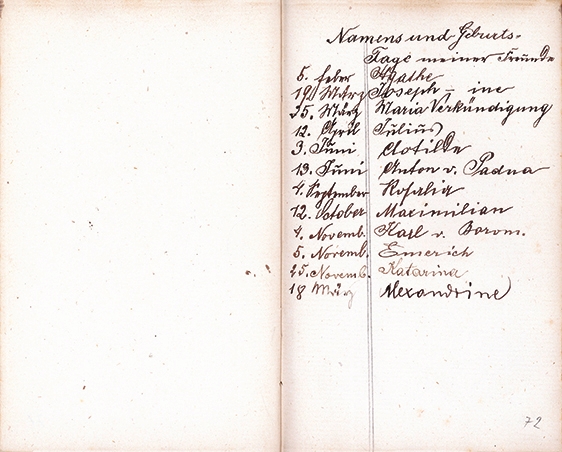 Namens und Geburts-
Tage meiner Freunde
5. feber Agathe
19. März Joseph - ine
25. März Maria Verkündigung
12. April Julius
3. Juni Clotilde
13. Juni Anton v. Padua
4. September Rosalia
12. October Maximilian
4. Novemb. Karl v. Borom.
5. Novemb. Emerich
25. Novemb. Katarina
18 März Alexandrine
72